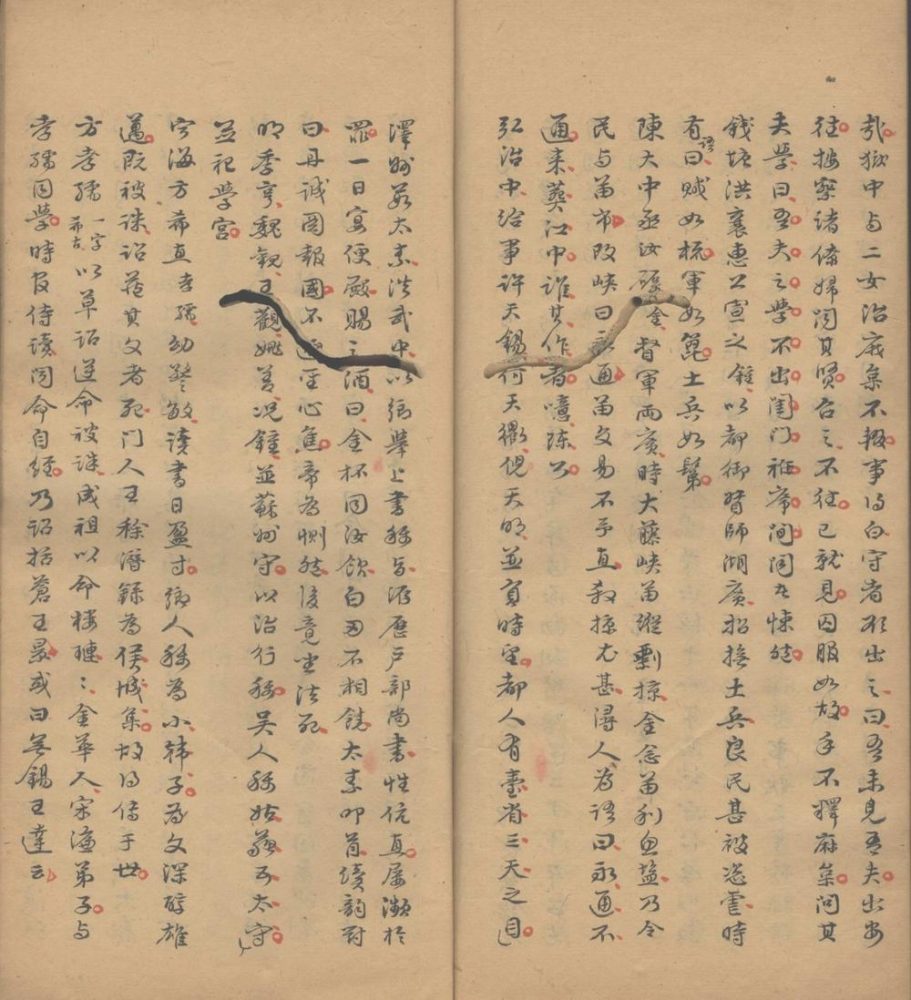 於獄中与二女治麻枲不輟事白守者欲出之曰吾未見吾夫出安
往按察諸僚婦聞其賢召之不往已就見囚服如故手不釋麻枲問其
夫學曰吾夫之學不出閨門袵席间闻者悚然
錢塘洪襄惠公宣之鍾以都御督師湖廣招撫土兵良民甚被恣虐時
有語曰賊如梳軍如篦土兵如鬀
陳大中丞汝礪金督軍兩廣時大藤峽苗縱剽掠金念苗利魚塩乃令
民与苗市改峽曰永通苗交易不手直殺掠尤甚潯人為語曰永通不
通来葬江中誰其作者噫陳公
弘治中给事許天錫何天衢倪天明並負時望都人有臺省三天之目
澤州茹太素洪武中以鄉舉上書稱旨洊歷户部尚書性伉直屢瀕於
罪一日宴便殿賜之酒曰金杯同汝飲白刃不相饒太素叩首續韵對
曰丹诚圖報國不避聖心焦帝為惻然後竟坐法死
明季亨魏觀王觀姚善况鍾並蘇州守以治行称吴人称姑蘇五太守
並祀學宫
寧海方希直孝孺幼警敏讀書日盈寸鄉人稱為小韩子為文深醇雄
邁既被诛诏藏其文者死门人王稌潛録為侯城集故得傳于世
方孝孺一字希古以草诏逆命被诛成祖以命楼璉璉金華人宋濂弟子与
孝孺同學時官侍讀闻命自经乃诏括蒼王景或曰無錫王達云